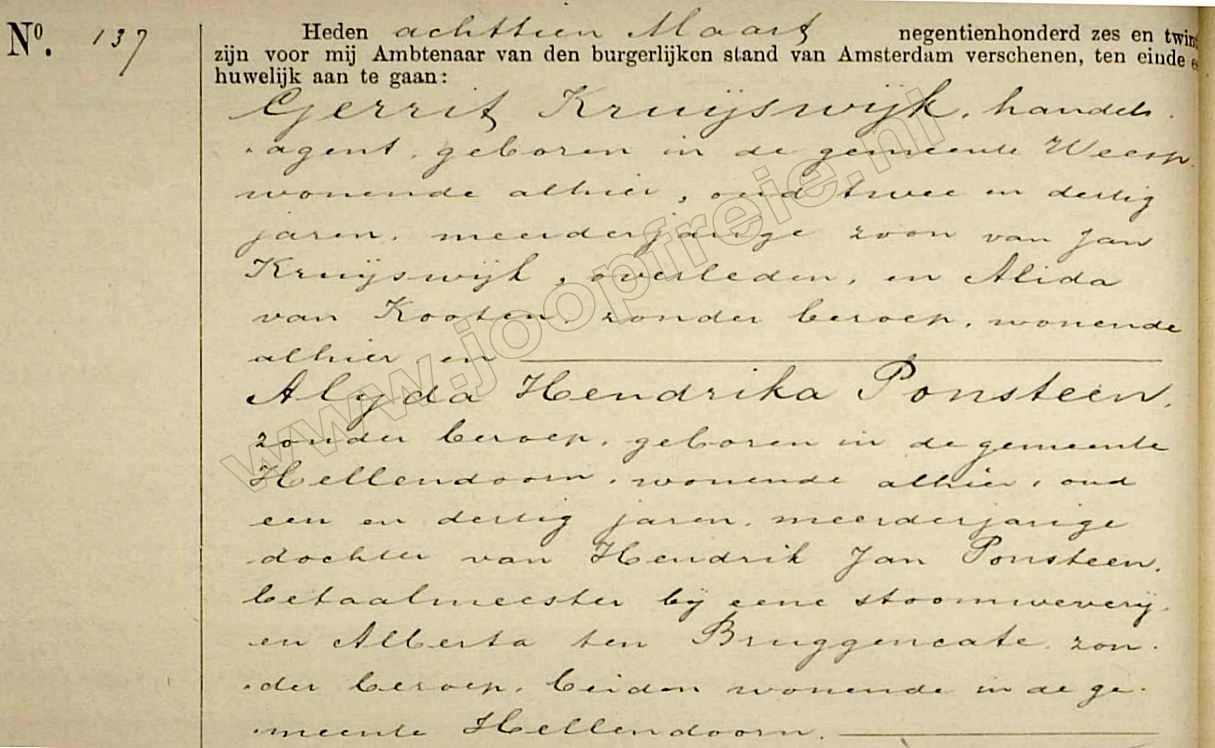 N⁰. 137
Heden achttien Maart negentienhonderd zes en twin
zijn voor mij Ambtenaar van den burgerlijken stand van Amsterdam verschenen, ten einde e
huwelijk aan te gaan:
Gerrit Kruijswijk, handels-
agent, geboren in de gemeente Weesp,
wonende alhier, oud twee en dertig
jaren, meerderjarige zoon van Jan
Kruijswijk, overleden, en Alida
van Kooten, zonder beroep, wonende
alhier en
Alyda Hendrika Ponsteen,
zonder beroep, geboren in de gemeente
Hellendoorn, wonende alhier, oud
een en dertig jaren, meerderjarige
dochter van Hendrik Jan Ponsteen,
betaalmeester bij eene stoomweverij,
en Alberta ten Bruggencate, zon-
der beroep, beiden wonende in de ge-
meente Hellendoorn.
www.joopfreie.nl